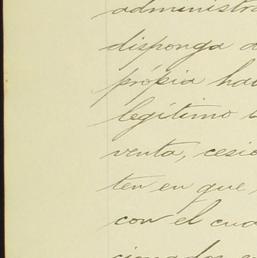 administra
disponga d
própia ha
legítimo
venta, cesio
ten en que,
con el cua
cionados e